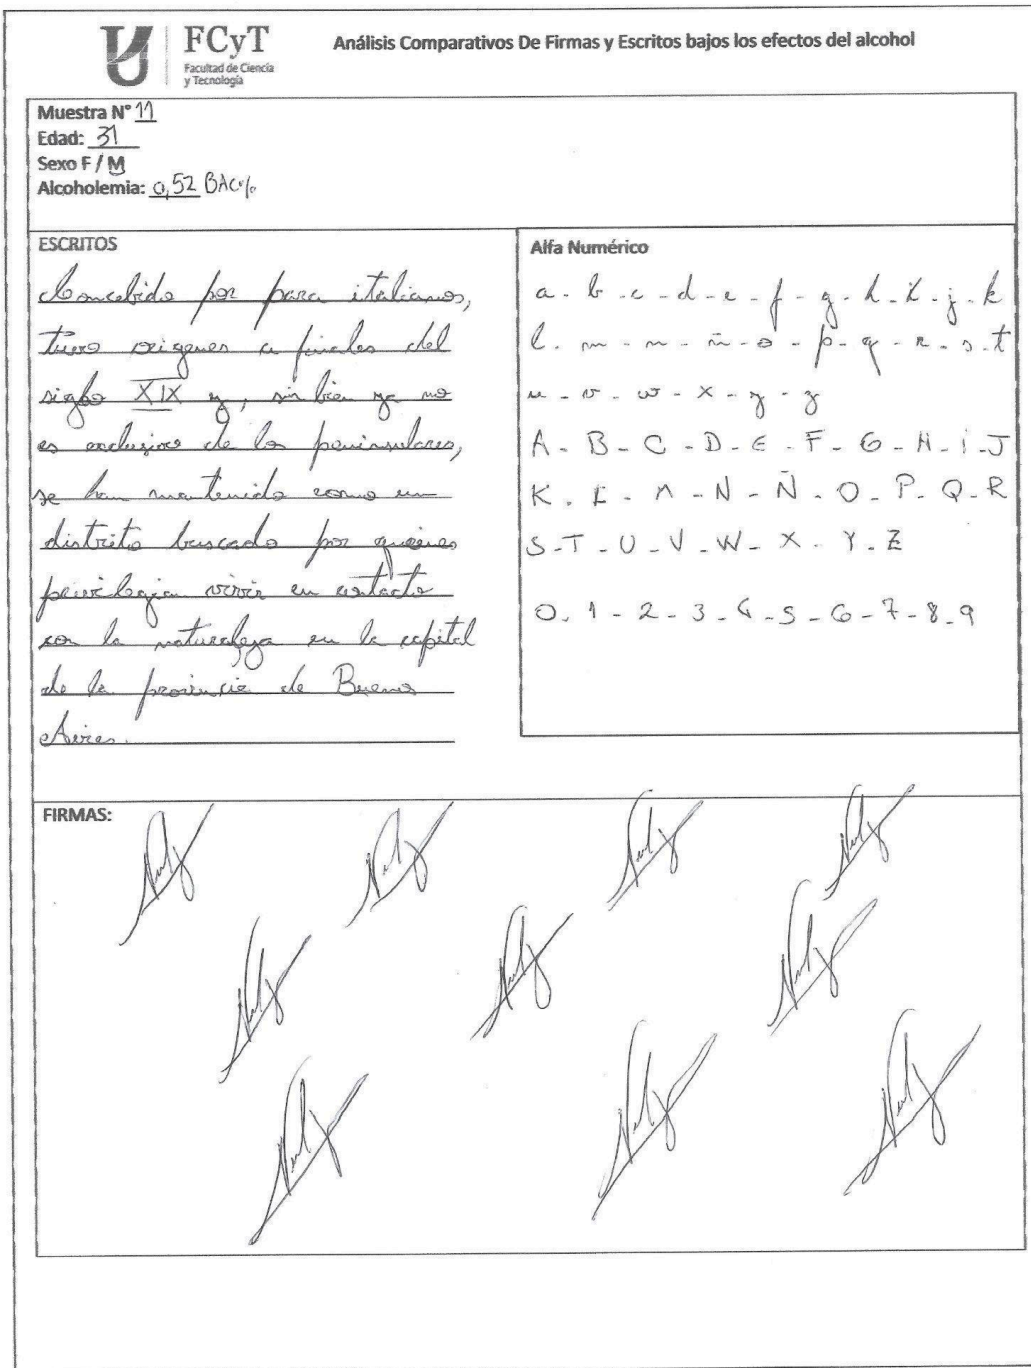 FCyT
Facultad de Ciencia
y Tecnología
Análisis Comparativos De Firmas y Escritos bajos los efectos del alcohol
Muestra N° 11
Edad: 31
Sexo F / M
Alcoholemia: 0,52 BAC%
ESCRITOS
Concebido por para italianos,
tuvo origenes a finales del
siglo XIX y, sin bien ya no
es exclusivo de los peninsulares,
se han mantenido como un
distrito buscado por quienes
privilegian vivir en contacto
con la naturaleza en la capital
de la provincia de Buenos
Aires.
Alfa Numérico
a - b - c - d - e - f - g - h - i - j - k
l - m - n - ñ - o - p - q - r - s - t
u - v - w - x - y - z
A - B - C - D - E - F - G - H - i - J
K - L - M - N - Ñ - O - P - Q - R
S - T - U - V - W - X - Y - Z
0 - 1 - 2 - 3 - 4 - 5 - 6 - 7 - 8 - 9
FIRMAS: